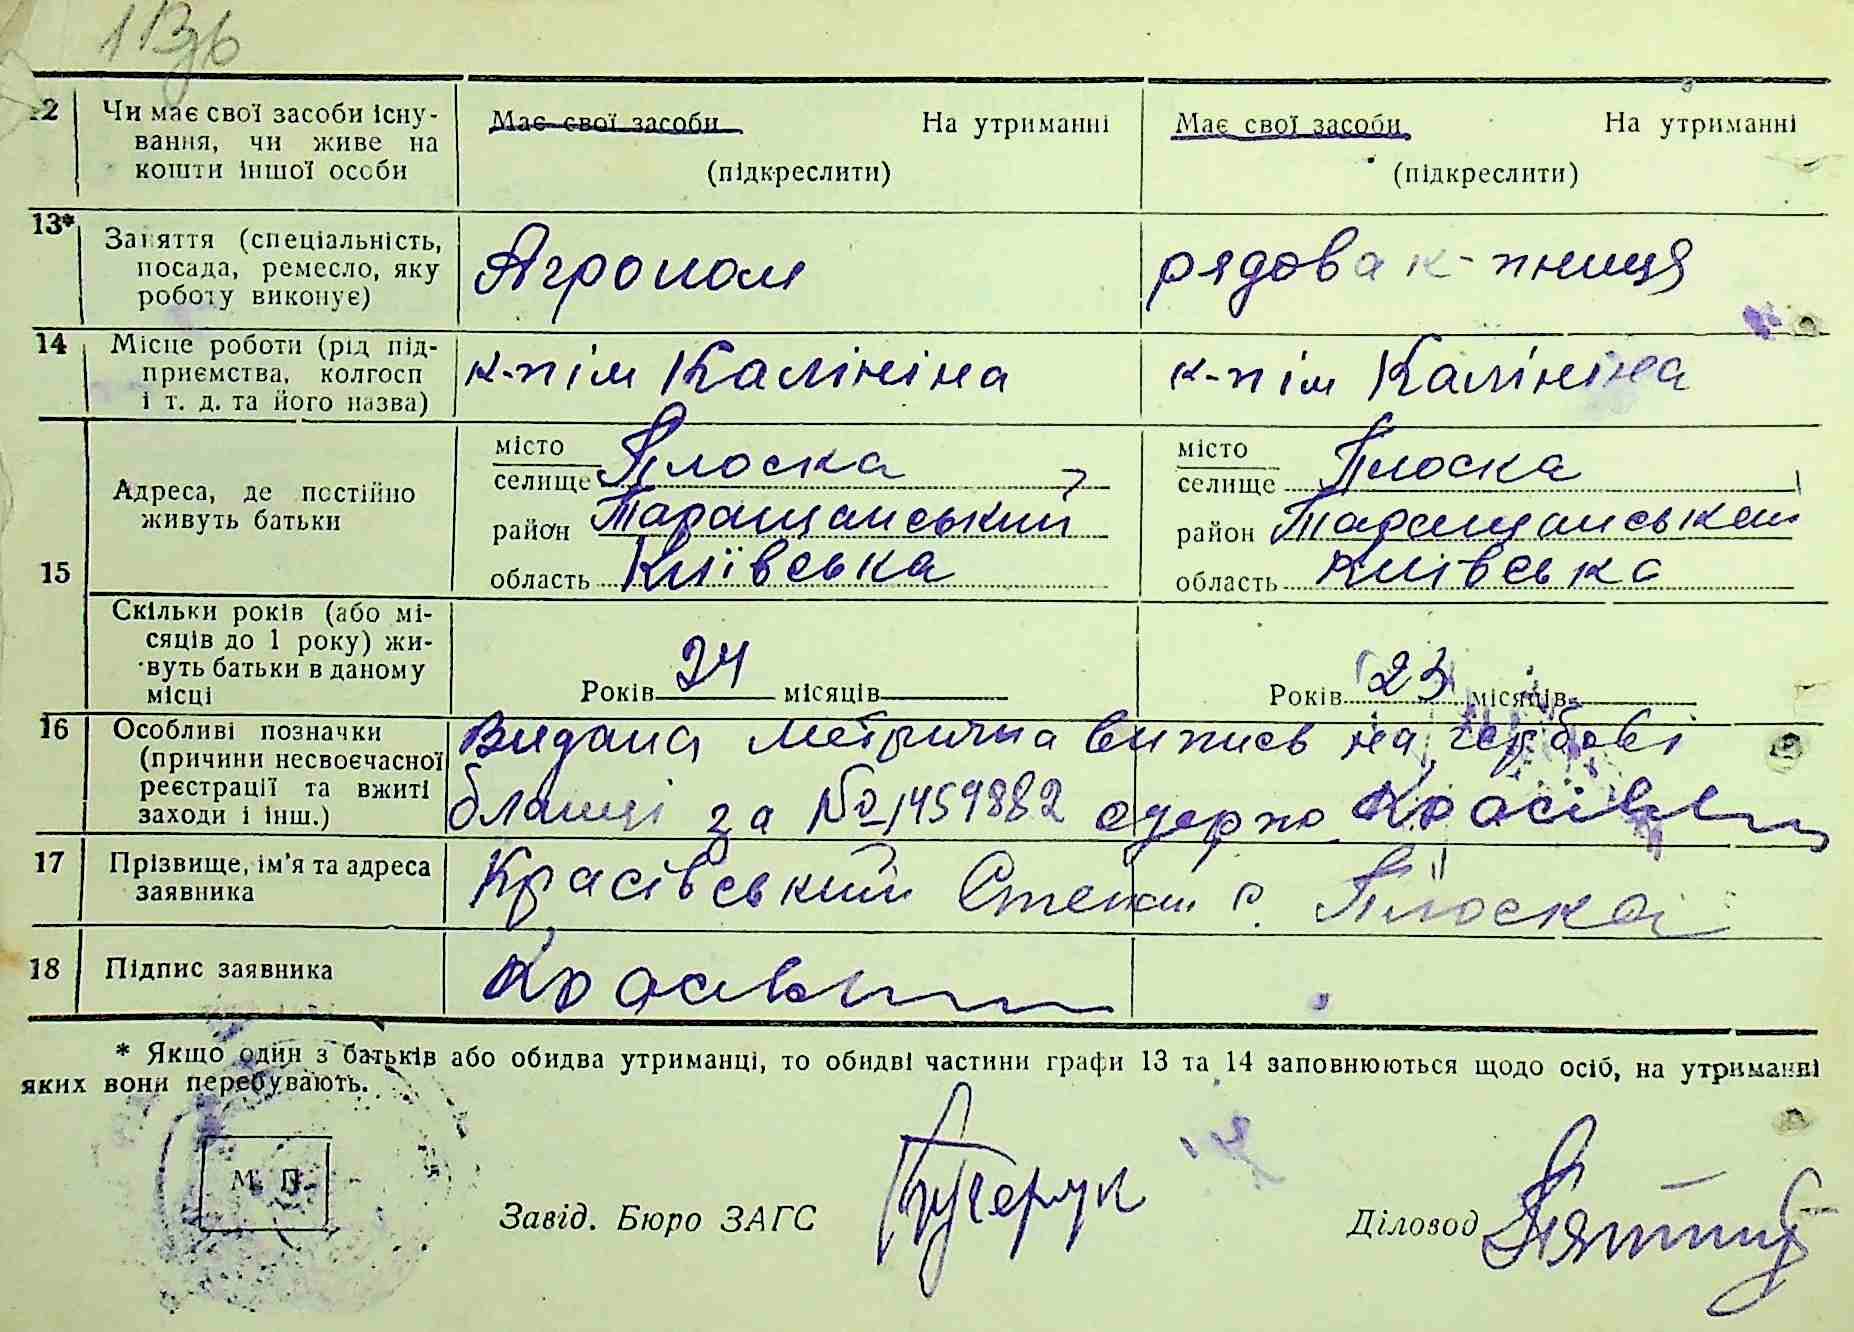 12 Чи має свої засоби існу- Має свої засоби На утриманні Має свої засоби На утриманні
вання, чи живе на
кошти іншої особи (підкреслити) (підкреслити)
13* Заняття (спеціальність,
посада, ремесло, яку Агроном рядова к-пниця
роботу виконує)
14 Місце роботи (рід під-
приємства, колгосп к-п ім Калініна к-п ім Калініна
і т. д. та його назва)
15 Адреса, де постійно
живуть батьки
місто
селище Плоска
район Таращанський
область Київська
місто
селище Плоска
район Таращанський
область Київська
Скільки років (або мі-
сяців до 1 року) жи-
вуть батьки в даному
місці
Років 24 місяців
Років 23 місяців
16 Особливі позначки
(причини несвоєчасної
реєстрації та вжиті
заходи і інш.)
Видана метрична випись на гербові
бланці за № 1459882 одержо Красівськ
17 Прізвище, ім'я та адреса
заявника
Красівський Степан с. Плоска
18 Підпис заявника
* Якщо один з батьків або обидва утриманці, то обидві частини графи 13 та 14 заповнюються щодо осіб, на утриманні
яких вони перебувають.
М. П.
Завід. Бюро ЗАГС
Діловод